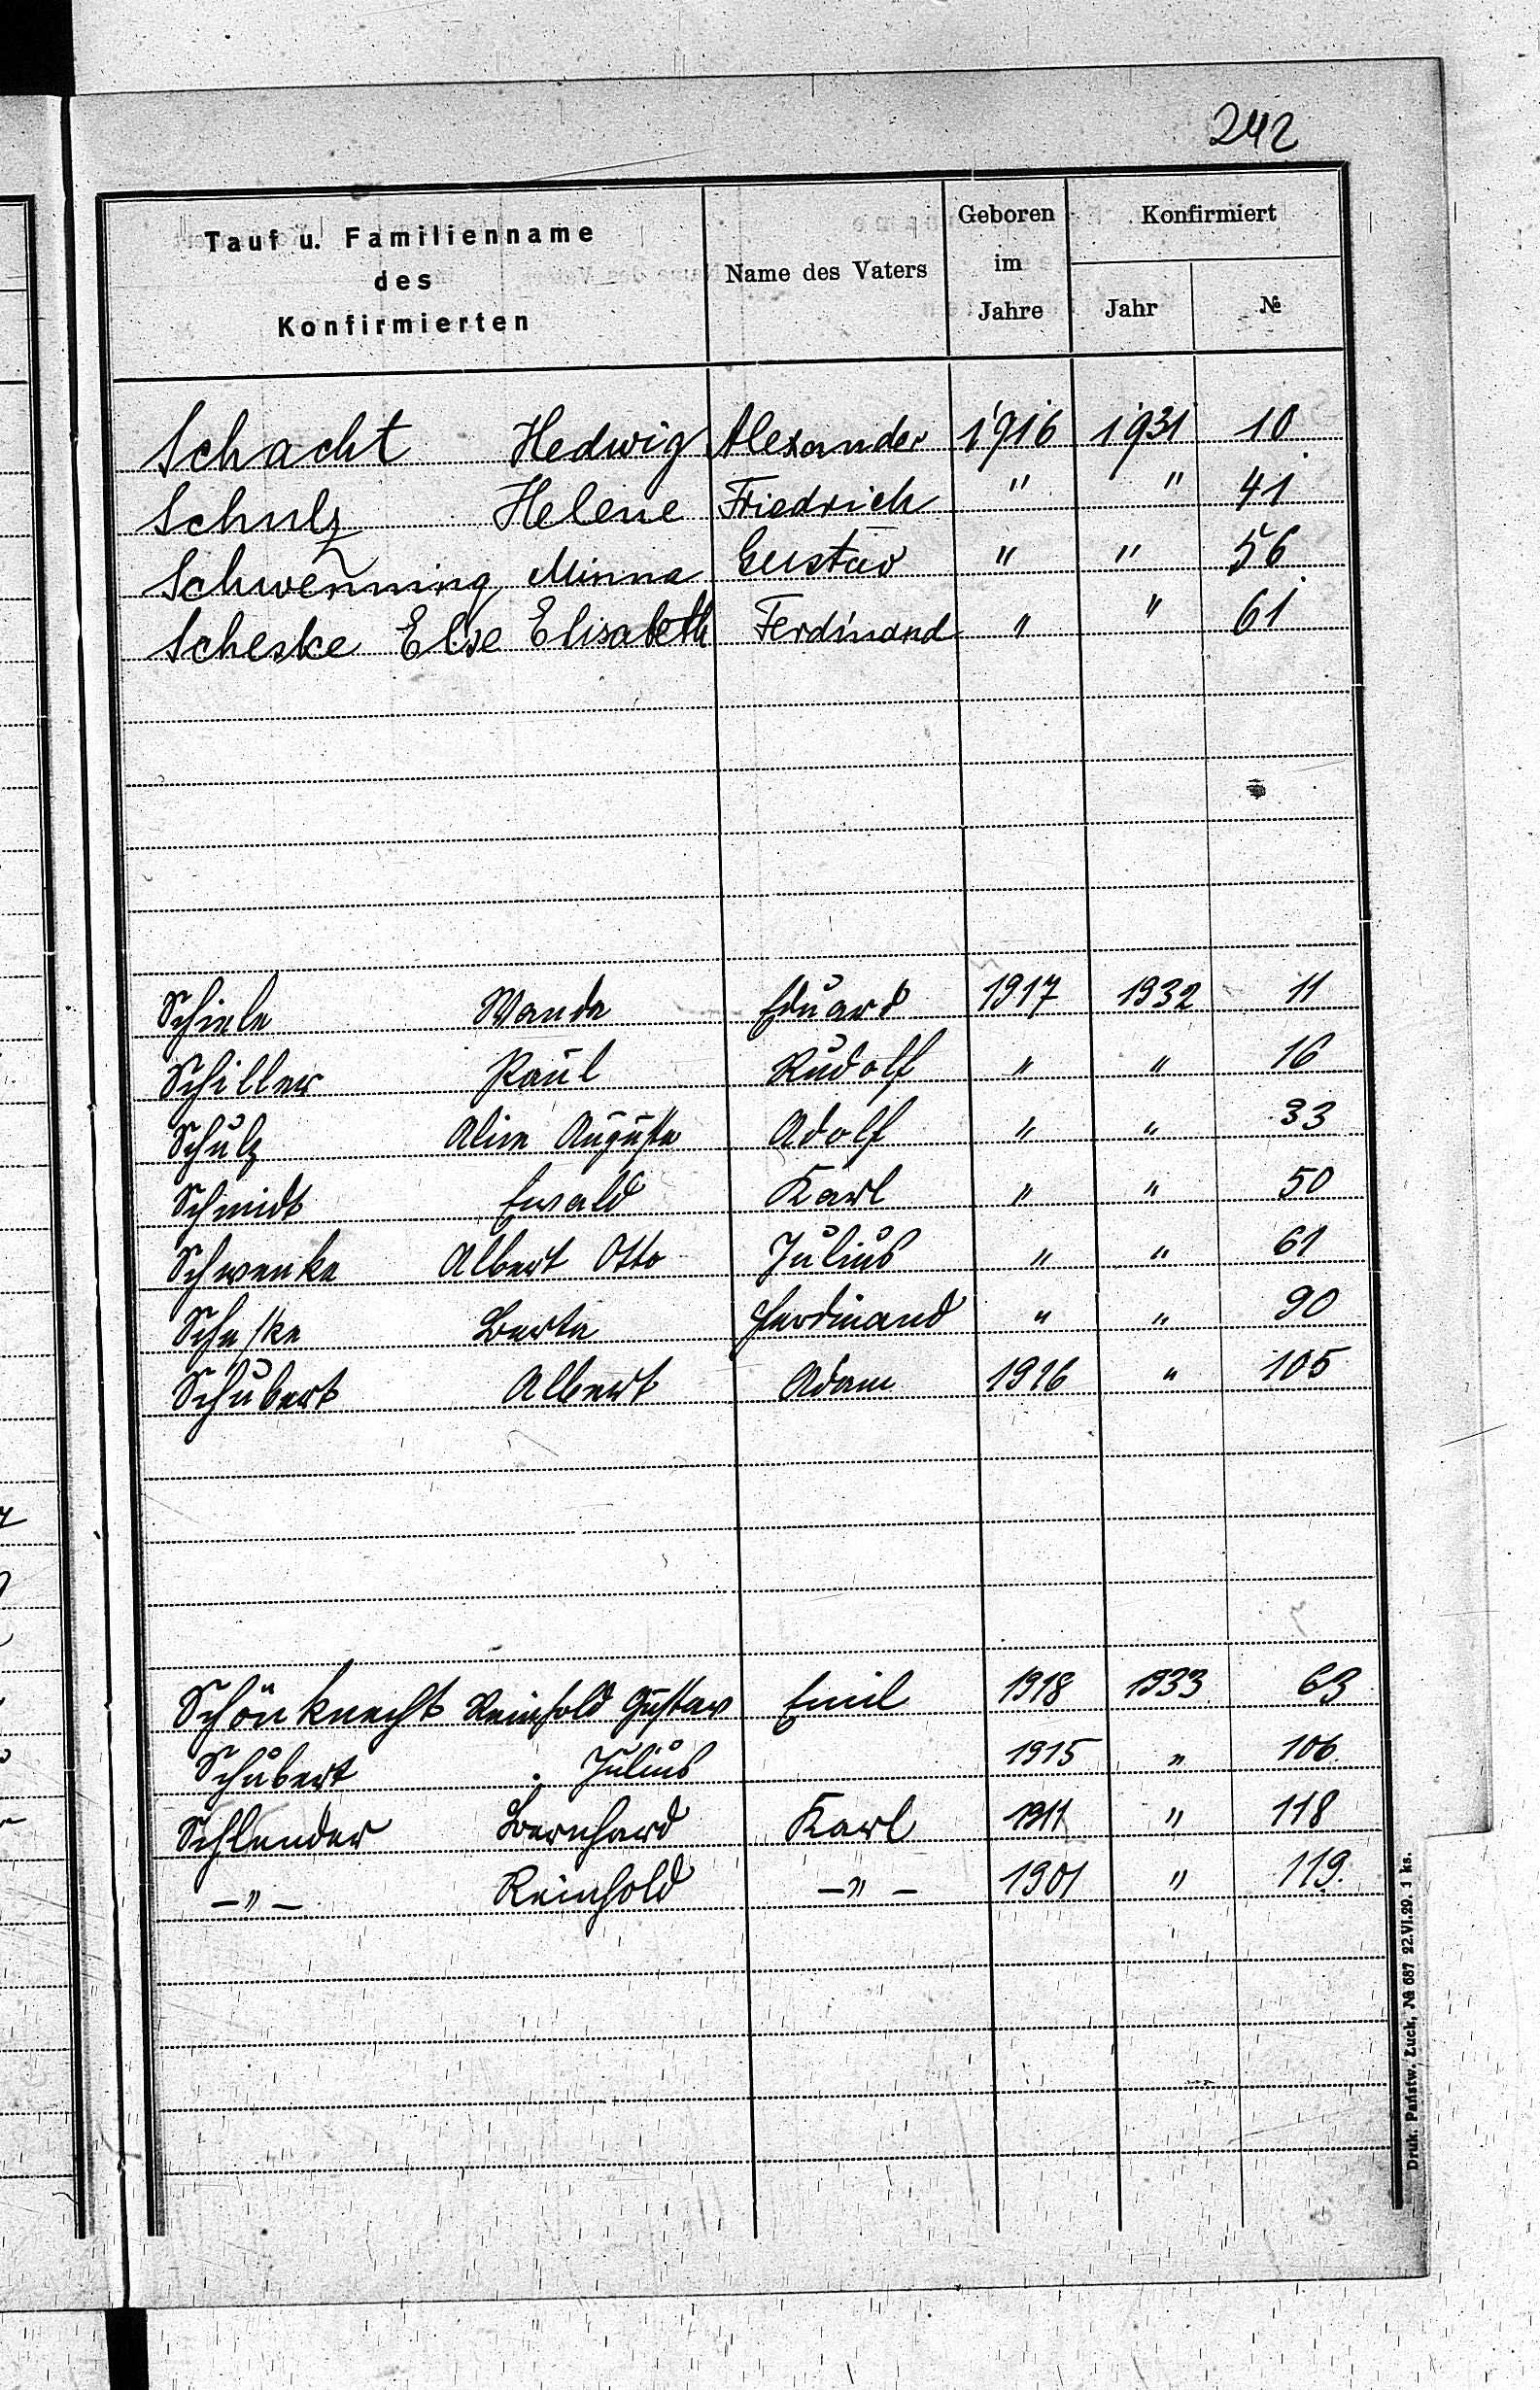 242
Tauf u. Familienname des Konfirmierten Name des Vaters Geboren im Jahre Konfirmiert Jahr №
Schacht Hedwig Alexander 1916 1931 10
Schulz Helene Friedrich " " 41
Schwenning Minna Gustav " " 56
Scheske Else Elisabeth Ferdinand " " 61
Schiele Wanda Eduard 1917 1932 11
Schiller Paul Rudolf " " 16
Schulz Auguste Adolf " " 33
Schmidt Ewald Karl " " 50
Schwenke Albert Otto Julius " " 61
Scheske Berta Ferdinand " " 90
Schubert Albert Adam 1916 " 105
Schönknecht Reinhold Gustav Emil 1918 1933 63
Schubert Julius 1915 " 106
Schlender Bernhard Karl 1911 " 118
—"— Reinhold —"— 1901 " 119.
Druk. Państw. Łuck, № 687 22.VI.29. 1 ks.